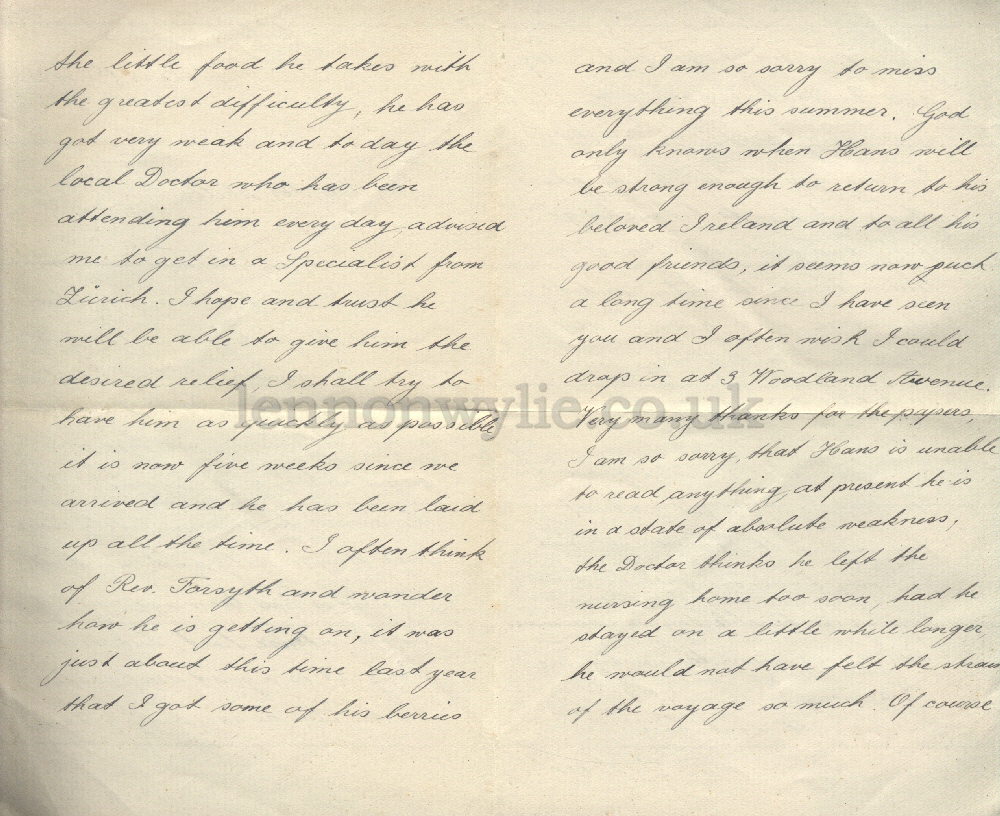 the little food he takes with
the greatest difficulty, he has
got very weak and to day the
local Doctor who has been
attending him every day, advised
me to get in a Specialist from
Zürich. I hope and trust he
will be able to give him the
desired relief, I shall try to
have him as quickly as possible
it is now five weeks since we
arrived and he has been laid
up all the time. I often think
of Rev. Forsyth and wonder
how he is getting on, it was
just about this time last year
that I got some of his berries
and I am so sorry to miss
everything this summer. God
only knows when Hans will
be strong enough to return to his
beloved Ireland and to all his
good friends, it seems now such
a long time since I have seen
you and I often wish I could
drop in at 3 Woodland Avenue.
Very many thanks for the papers,
I am so sorry, that Hans is unable
to read anything, at present he is
in a state of absolute weakness,
the Doctor thinks he left the
nursing home too soon, had he
stayed on a little while longer
he would not have felt the strain
of the voyage so much. Of course
lennonwylie.co.uk